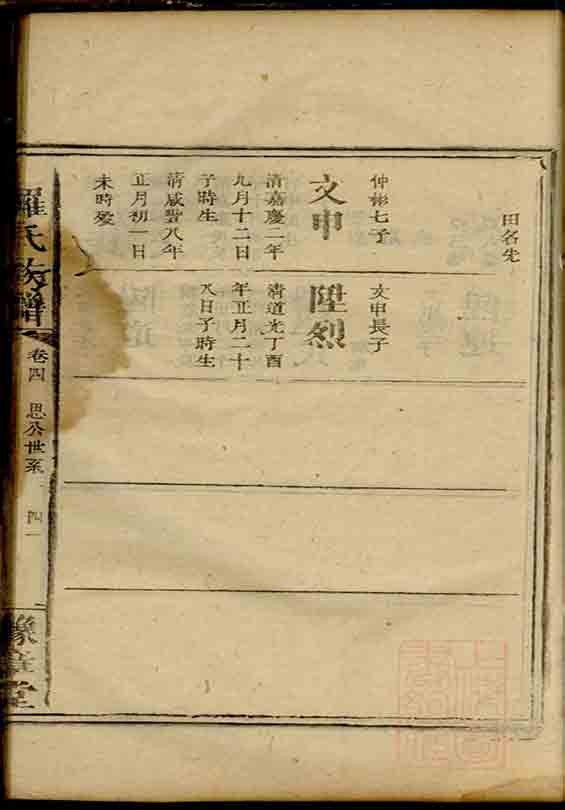 田名先
仲彬七子
文申
清嘉慶二年
九月十二日
子時生
清咸豐八年
正月初一日
未時歿
文申長子
陞烈
清道光丁酉
年正月二十
八日子時生
羅氏族譜
卷四
思公世系
四一
豫章堂